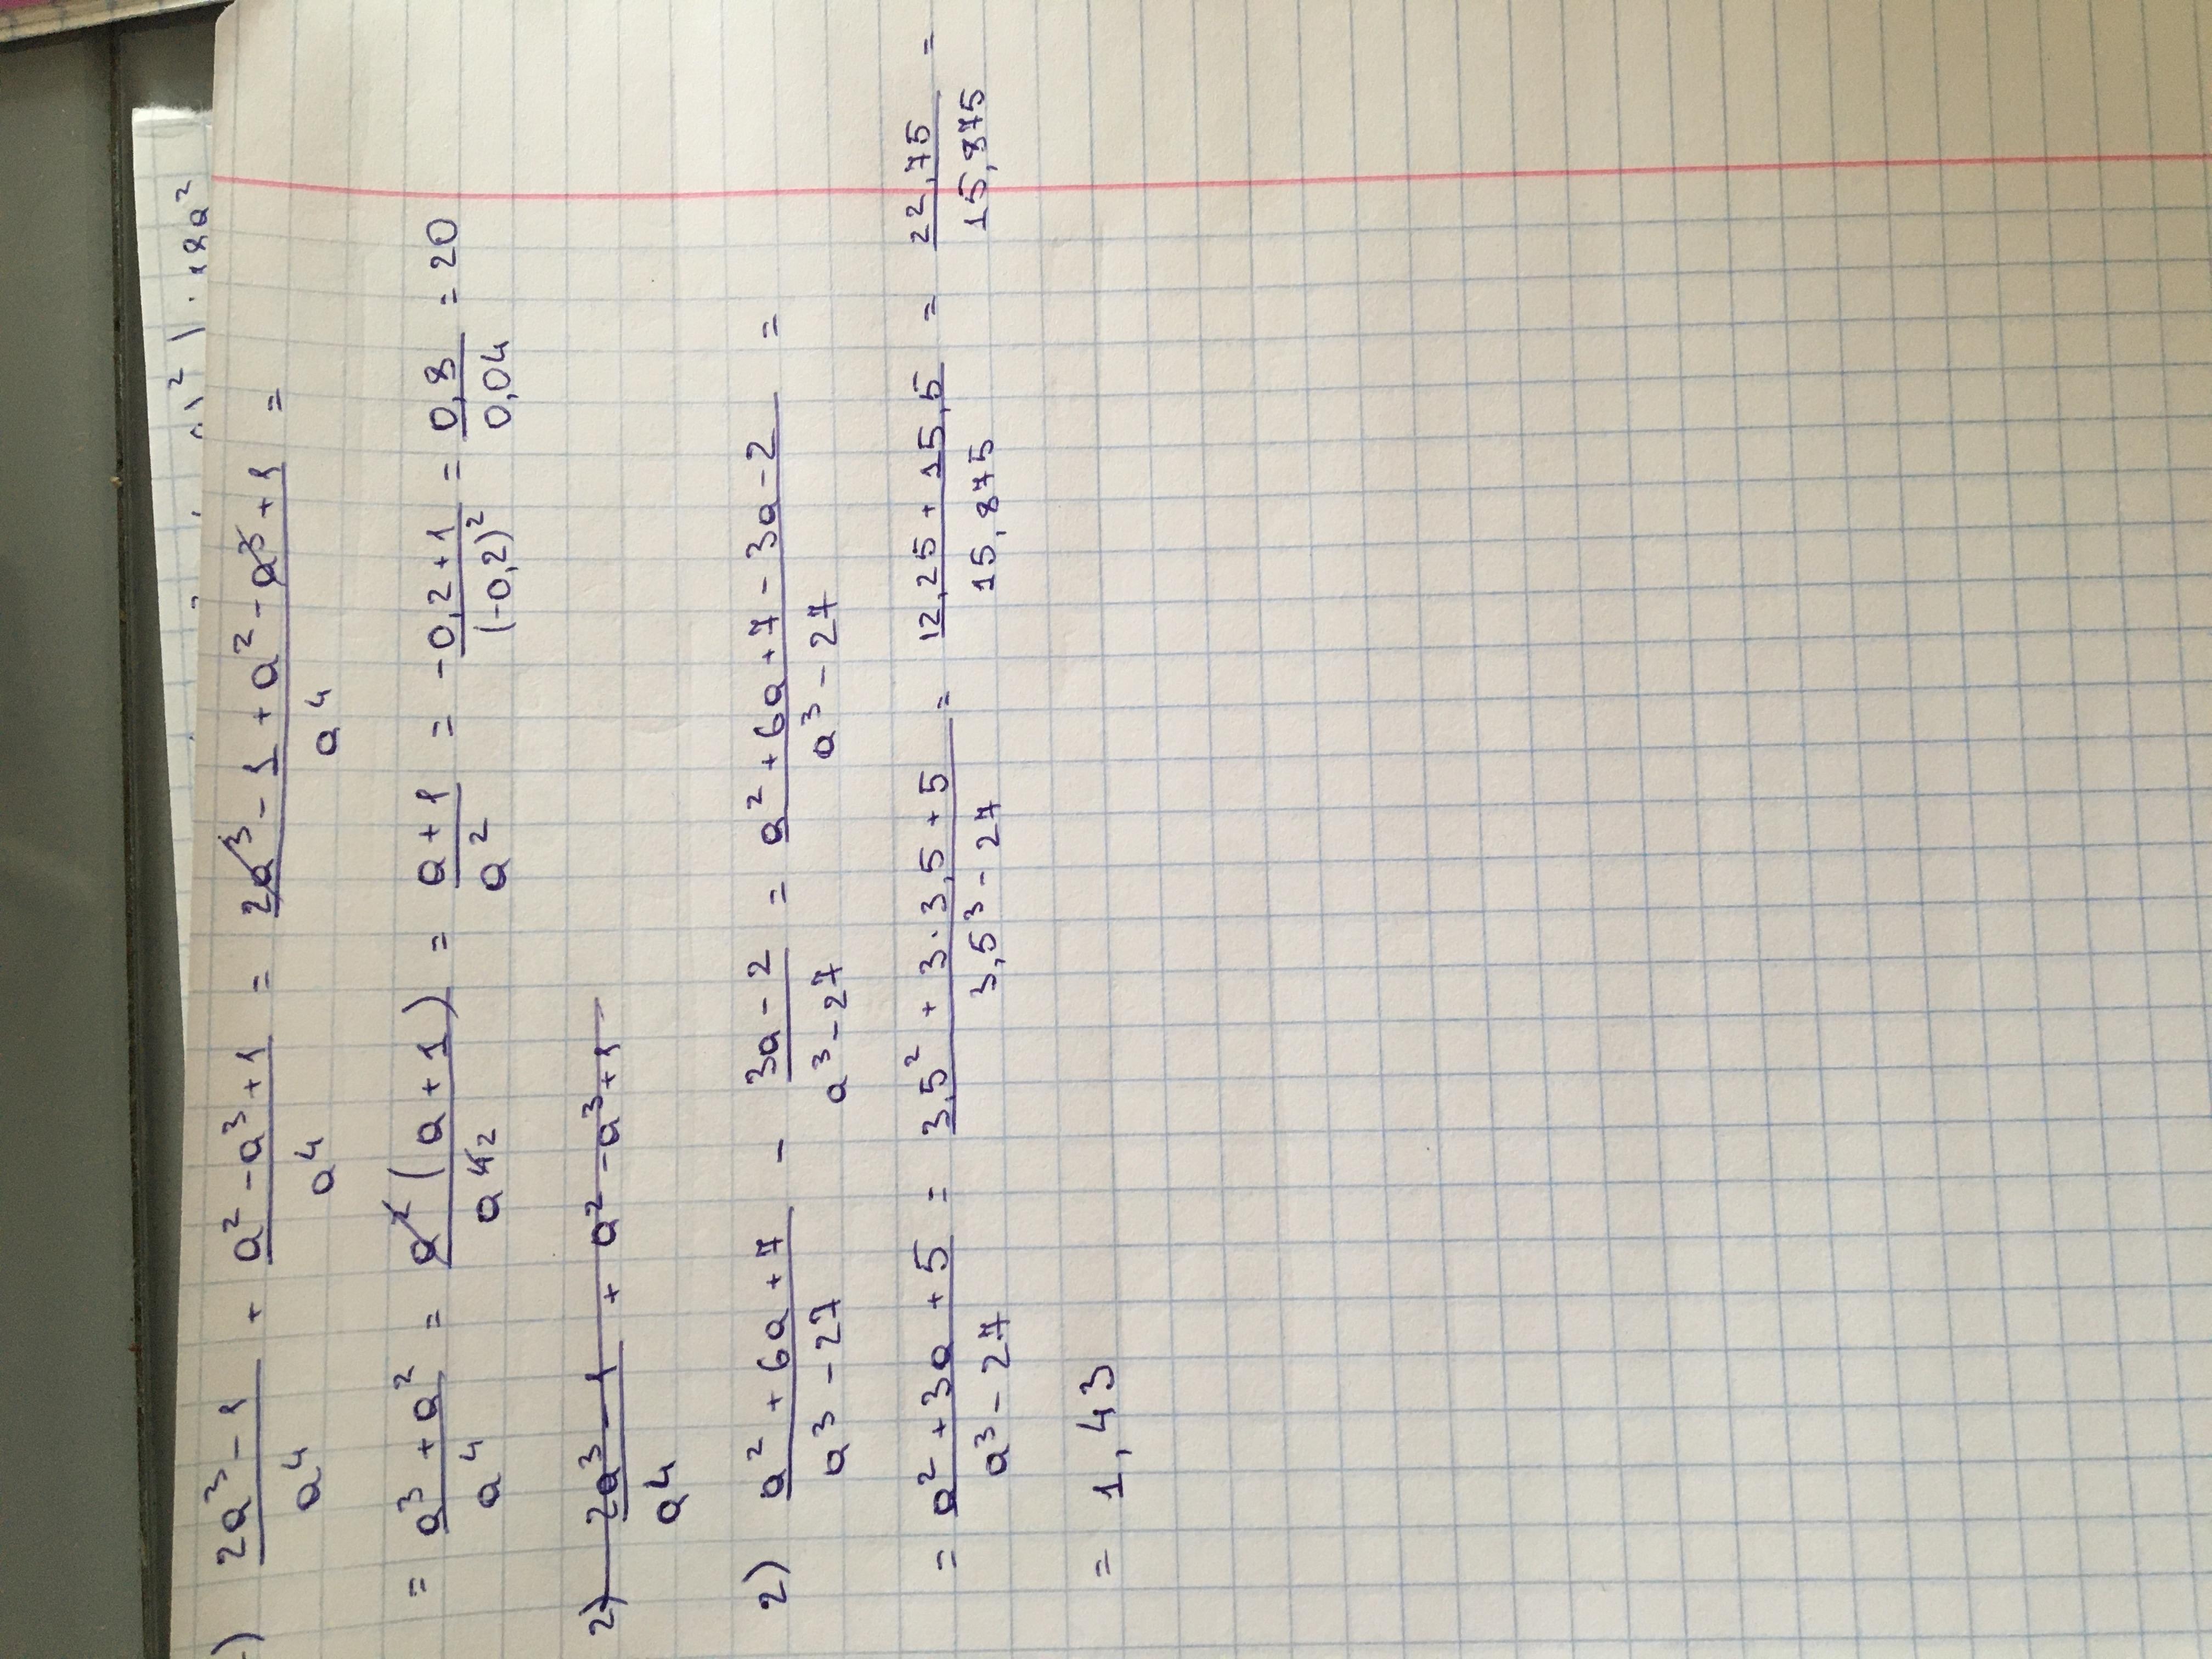 ) (2a³ - 1)/a⁴ + (a² - a³ + 1)/a⁴ = (2a³ - 1 + a² - a³ + 1)/a⁴ =
= (a³ + a²)/a⁴ = a²(a + 1)/a⁴ ² = (a + 1)/a² = (-0,2 + 1)/(-0,2)² = 0,8/0,04 = 20
2) (2a³ - 1)/a⁴ + a² - a³ + 1
2) (a² + 6a + 7)/(a³ - 27) - (3a - 2)/(a³ - 27) = (a² + 6a + 7 - 3a - 2)/(a³ - 27) =
= (a² + 3a + 5)/(a³ - 27) = (3,5² + 3 · 3,5 + 5)/(3,5³ - 27) = (12,25 + 15,5)/15,875 = 22,75/15,875 =
= 1,43